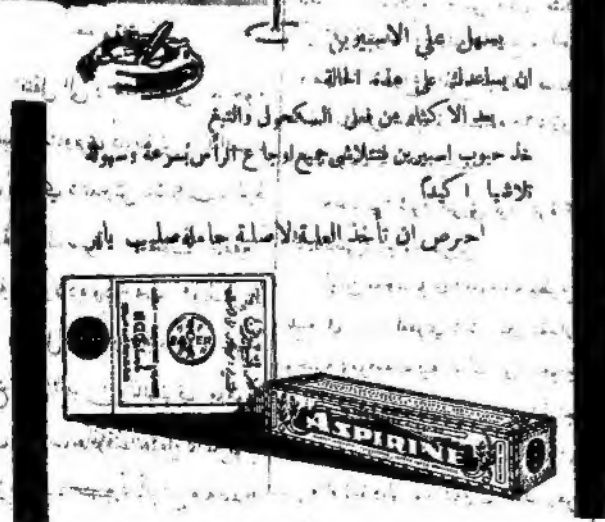 يسهل على الاسبيرين
ان يساعدك على هذه الحالة
بعد الاكثار من فعل السكحول والتبغ
خذ حبوب اسبيرين فتتلاشى جميع اوجاع الرأس بسرعة وسهولة
تلاشيا اكيدا
احرص ان تأخذ العلبة الاصلية حاملة صليب باير
BAYER
ASPIRINE